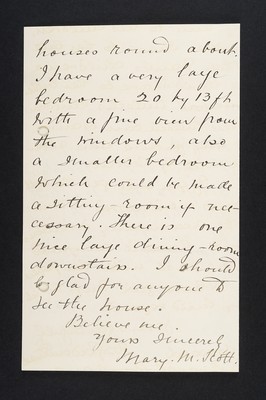 houses round about.
I have a very large
bedroom 20 by 13 ft
with a fine view from
the windows, also
a smaller bedroom
which could be made
a sitting-room if ne-
cessary. There is one
nice large dining-room
downstairs. I should
be glad for anyone to
see the house.
Believe me.
Yours sincerely
Mary. M. Stott.